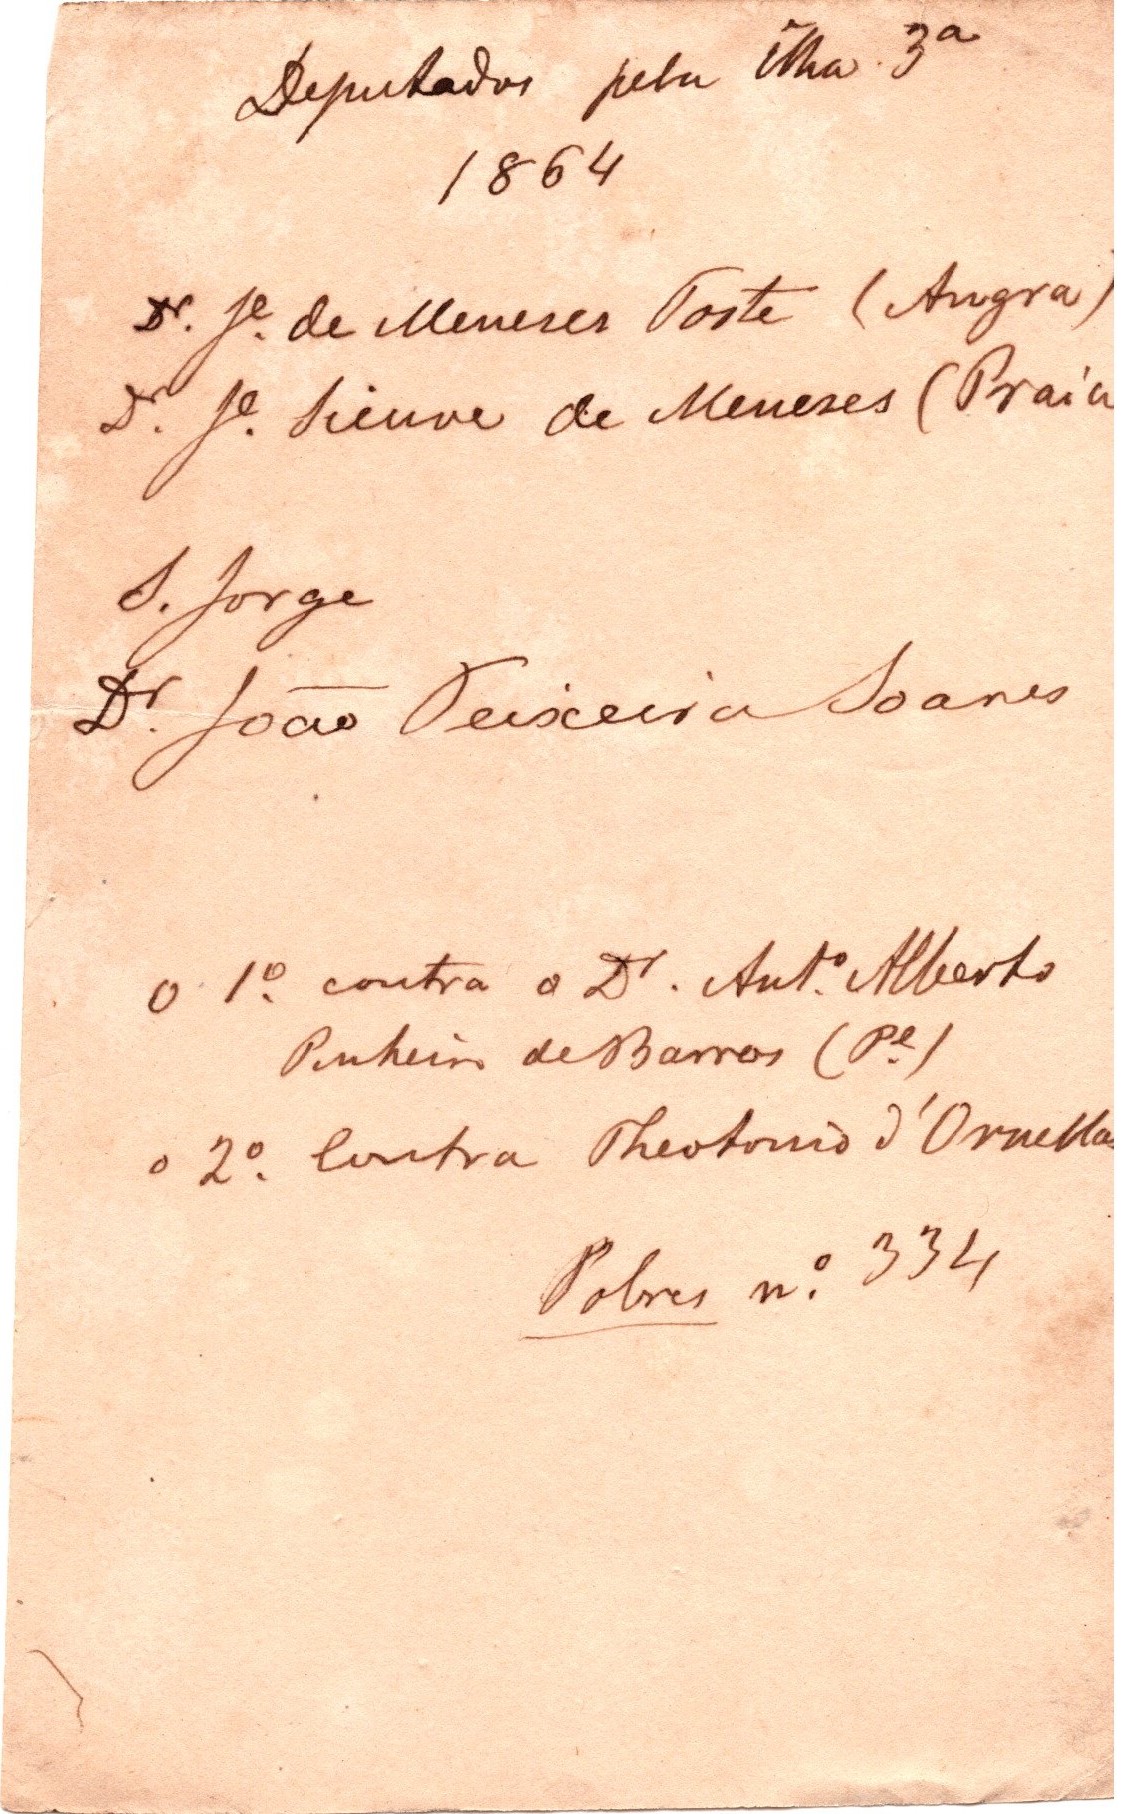 Deputados pela ilha 3ª
1864
Dr. Je. de Meneses Toste (Angra)
Dr. Je. Sieuve de Meneses (Praia
S. Jorge
Dr. João Teixeira Soares
o 1º. contra o Dr. Antº. Alberto
Pinheiro de Barros (Pe.)
o 2º. Contra Theotonio d'Ornellas
Pobres nº. 334